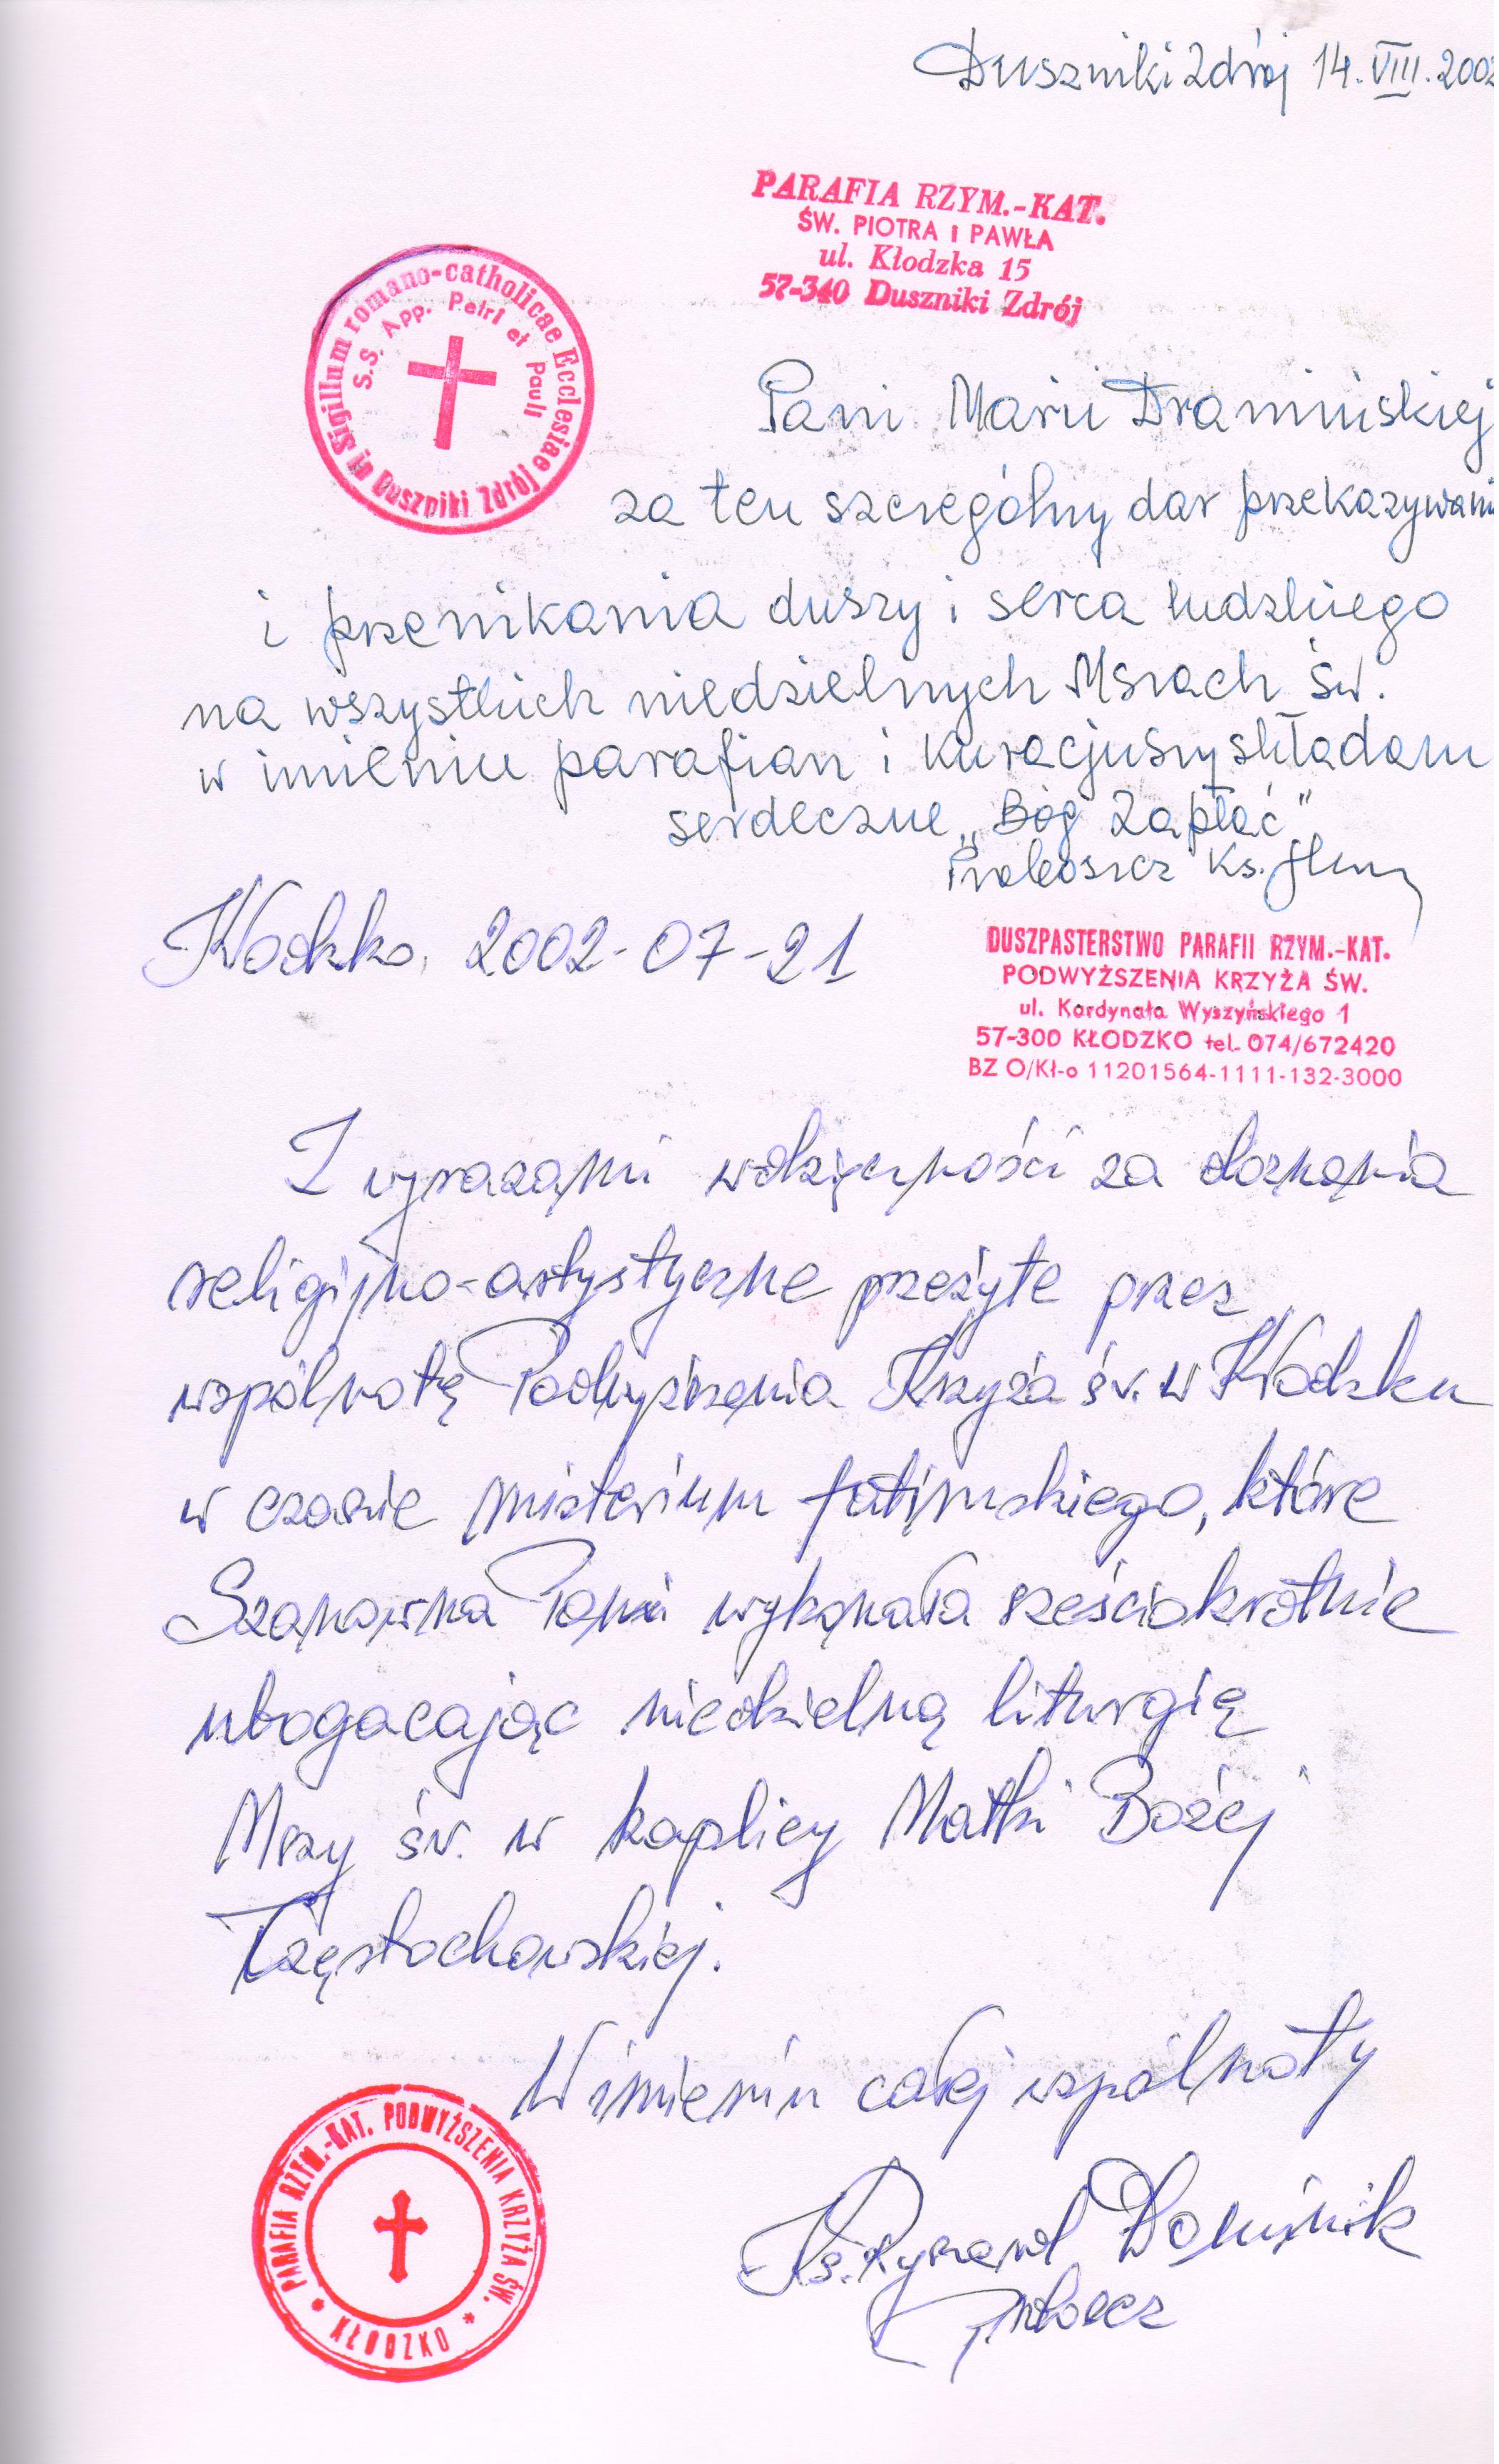 Duszniki Zdrój 14.VIII.2002
PARAFIA RZYM.-KAT.
ŚW. PIOTRA I PAWŁA
ul. Kłodzka 15
57-340 Duszniki Zdrój
Sigillum romano-catholicae Ecclesiae in Duszniki Zdrój
S.S. App. Petri et Pauli
Pani Marii Dramińskiej
za ten szczególny dar przekazywani
i przenikania duszy i serca ludzkiego
na wszystkich niedzielnych Mszach św.
w imieniu parafian i kuracjuszy składam
serdeczne „Bóg Zapłać"
Proboszcz Ks.
Kłodzko, 2002-07-21
DUSZPASTERSTWO PARAFII RZYM.-KAT.
PODWYŻSZENIA KRZYŻA ŚW.
ul. Kardynała Wyszyńskiego 1
57-300 KŁODZKO tel. 074/672420
BZ O/Kł-o 11201564-1111-132-3000
Z wyrazami wdzięczności za doznania
religijno-artystyczne przeżyte przez
wspólnotę Podwyższenia Krzyża św. w Kłodzku
w czasie misterium fatimskiego, które
Szanowna Pani wykonała sześciokrotnie
ubogacając niedzielną liturgię
Mszy św. w kaplicy Matki Bożej
Częstochowskiej.
W imieniu całej wspólnoty
Ks. Ryszard Dominik
proboszcz
PARAFIA RZYM.-KAT. PODWYŻSZENIA KRZYŻA ŚW.
* KŁODZKO *